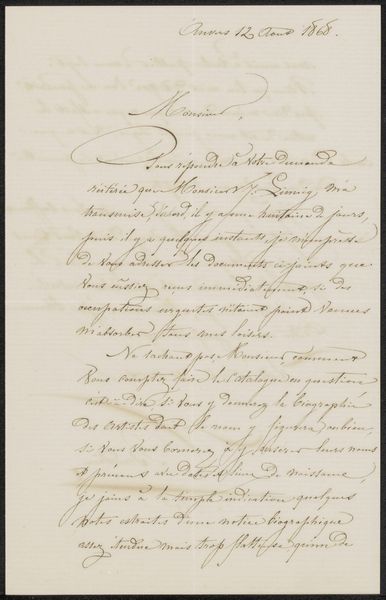 Anvers 12 Aout 1868.
Monsieur,
Pour répondre à votre demande
réitérée que Monsieur J. Linnig m'a
transmise d'abord, il y a une huitaine de jours,
puis il y a quelques instants, je m'empresse
de vous adresser les documents ci-joints que
vous eussiez reçus immédiatement, si des
occupations urgentes n'étaient point venues
m'absorber tous mes loisirs.
Ne sachant pas, Monsieur, comment
vous comptez faire le catalogue en question
c'est-à-dire si vous y donnerez la biographie
des artistes dont le nom y figurera ou bien
si vous vous bornerez à y insérer leurs noms
et prénoms avec dates et lieu de naissance,
je joins à la simple indication quelques
notes extraites d'une notice biographique
assez étendue mais trop flatteuse de